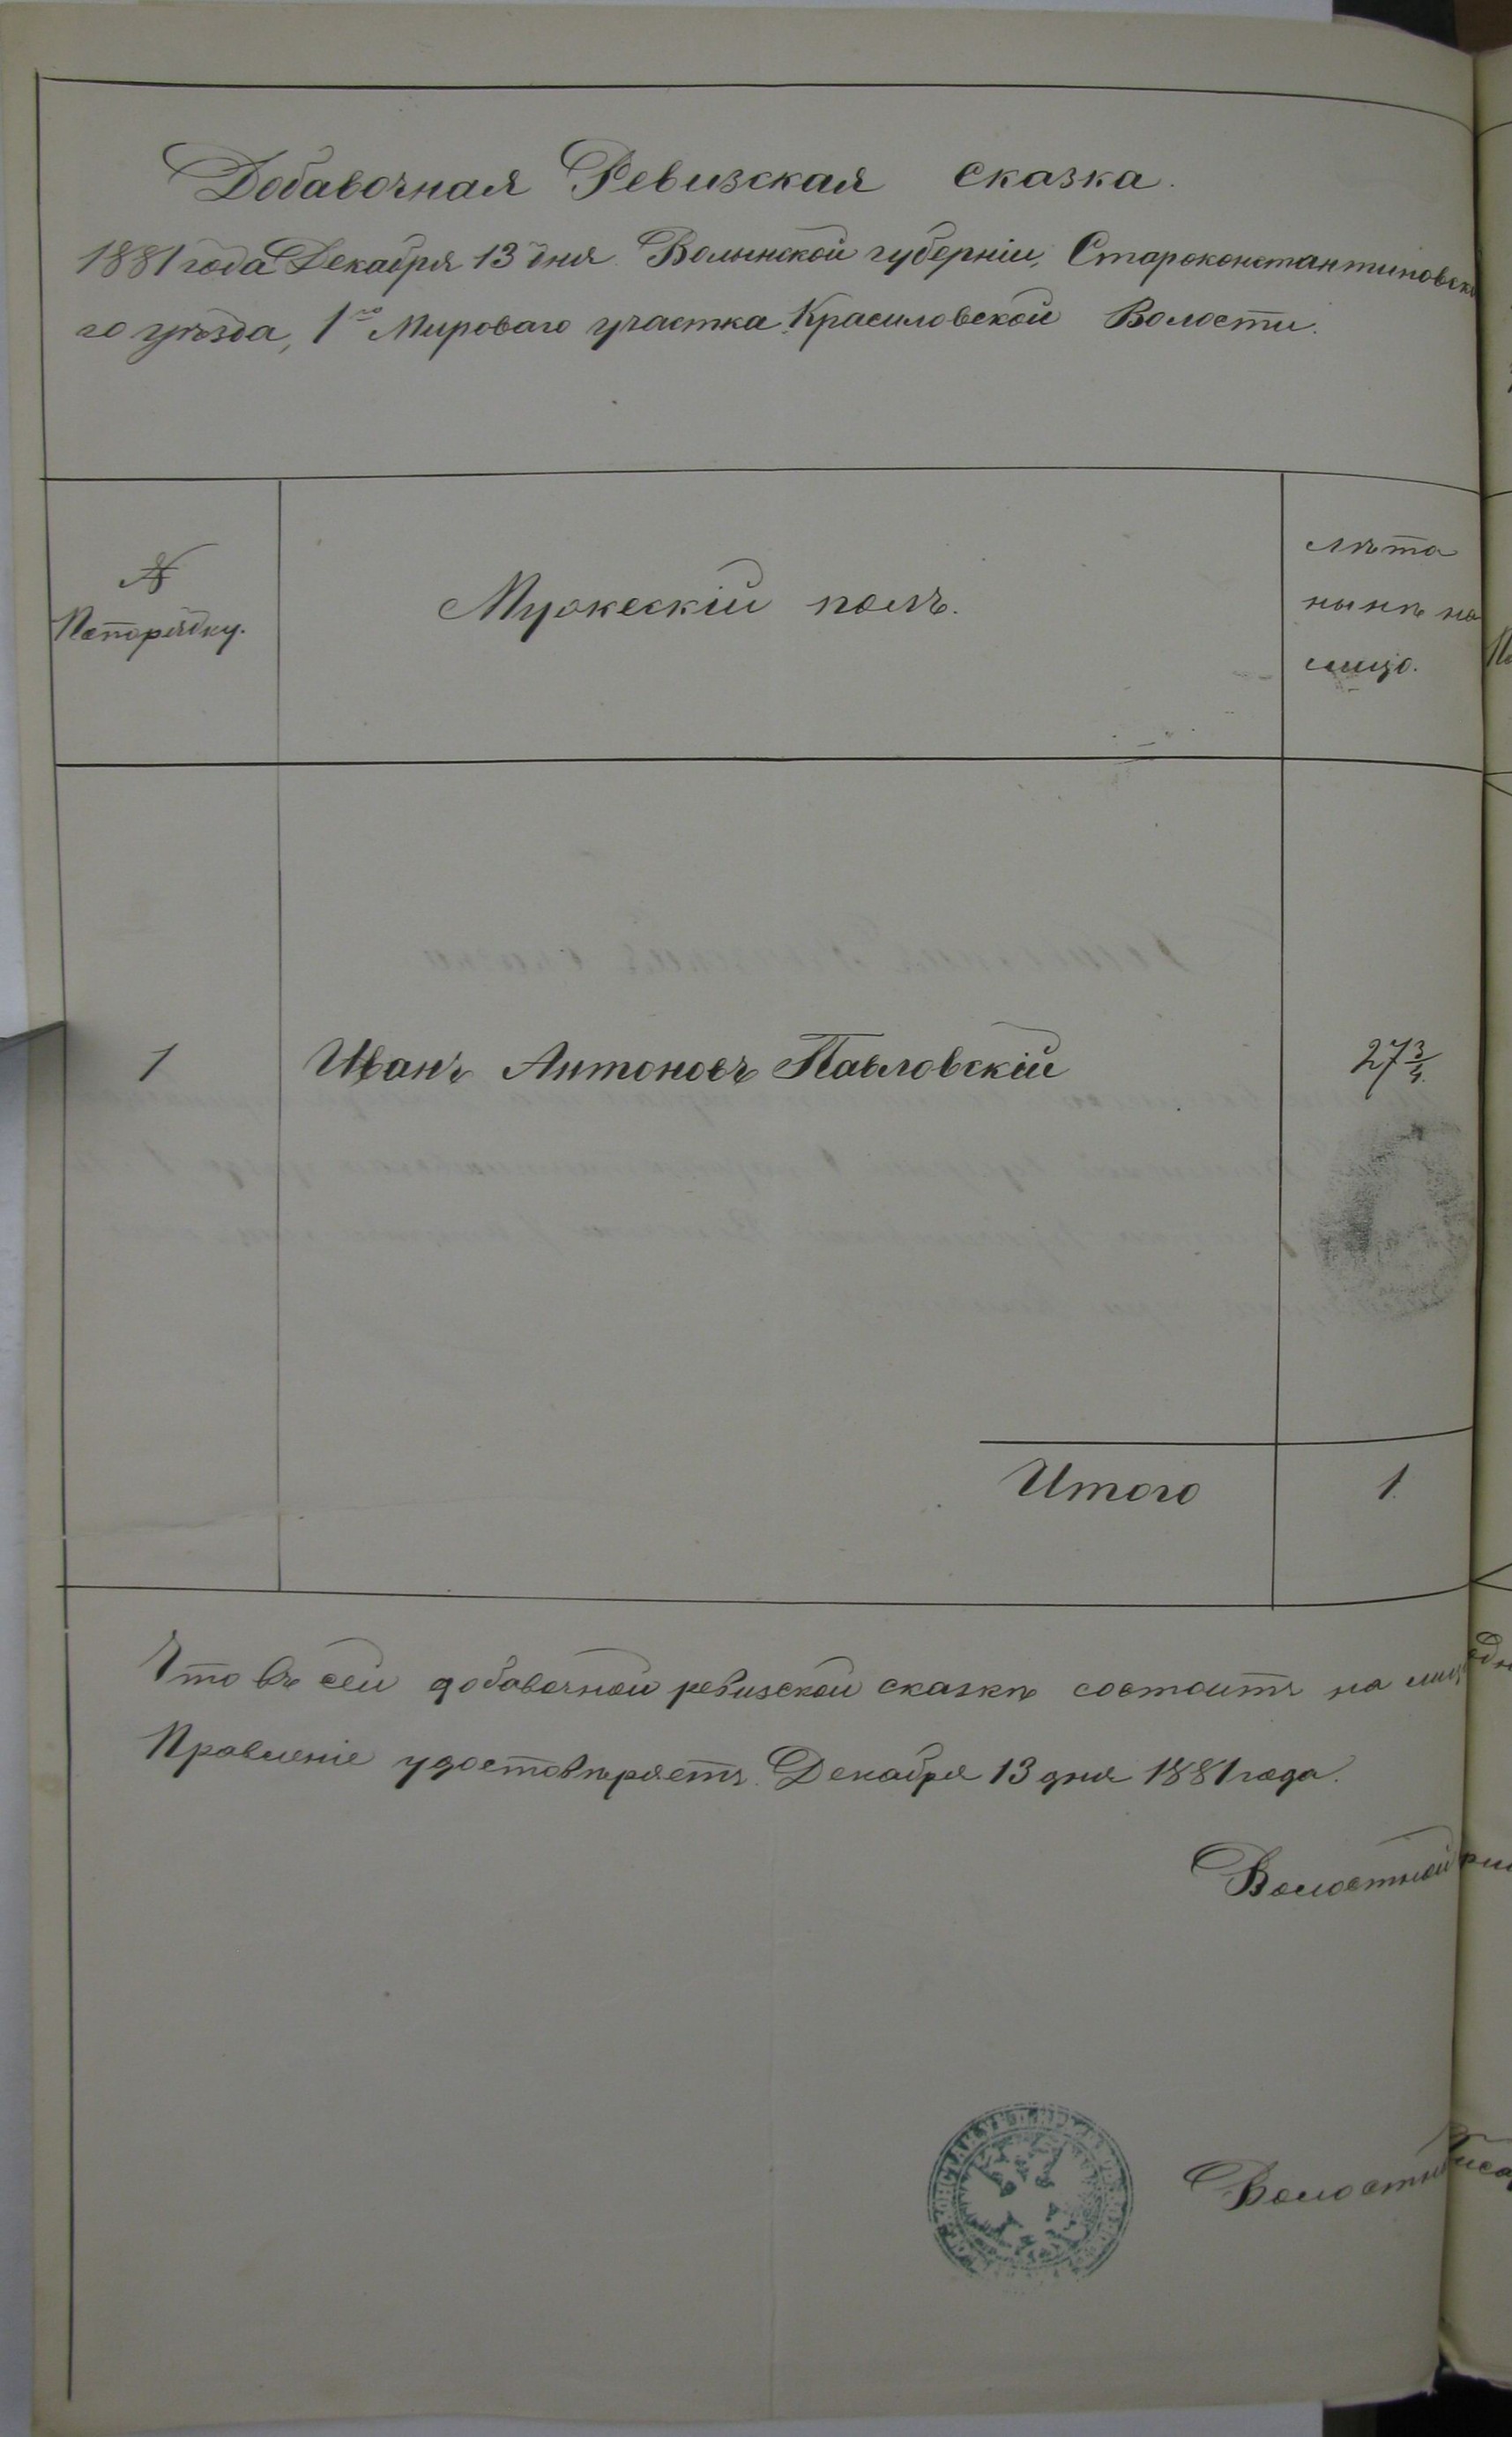 Добавочная Ревизская сказка.
1881 года Декабря 13 дня Волынской губернiи, Староконстантиновска
го уѣзда, 1го Мироваго участка Красиловской Волости.
№
Попорядку.
Мужескiй полъ.
лѣта
нынѣ на
лицо.
1
Иванъ Антоновъ Павловскiй
27 3/4
Итого
1
Что въ сей добавочной ревизской сказкѣ состоитъ на лицо
Правленiе удостовѣряетъ. Декабря 13 дня 1881 года.
Волостной
Волостный